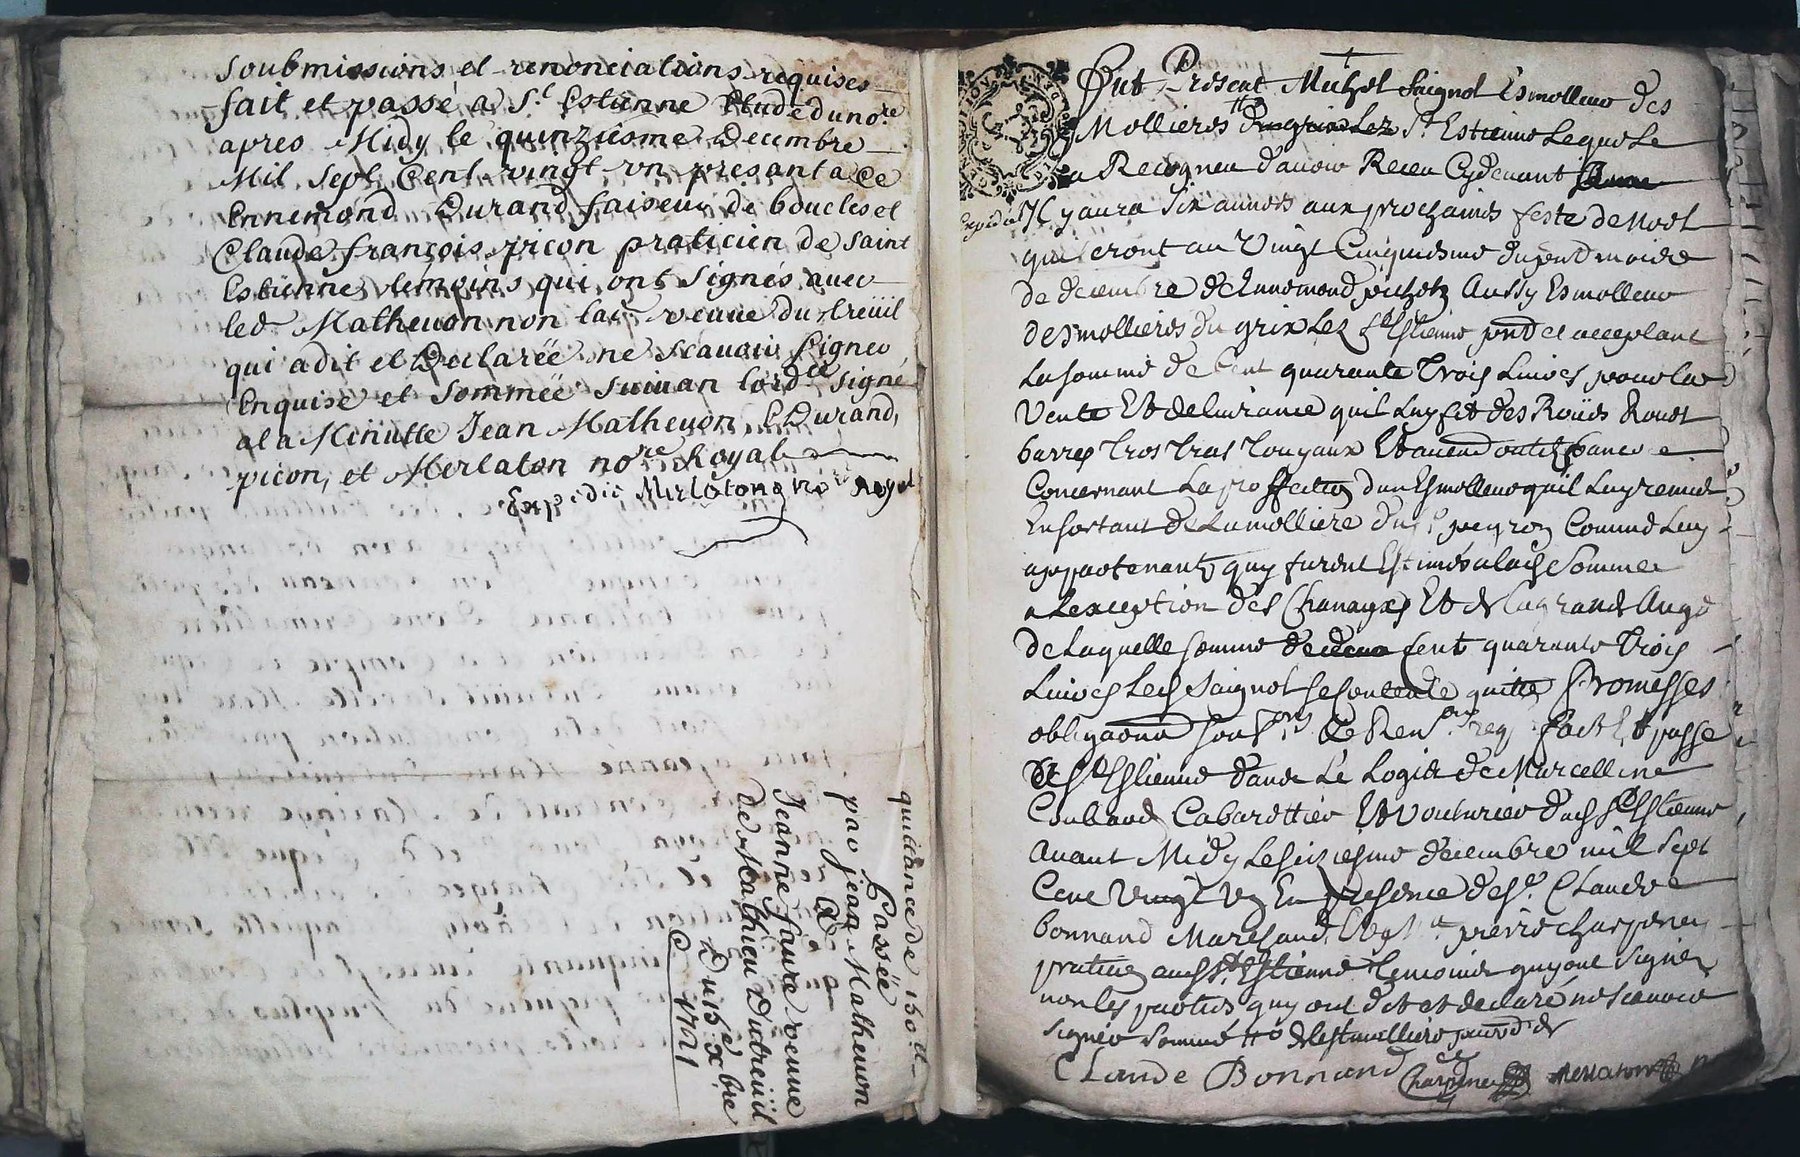 soubmissions et renonciations requises
fait et passé a St Estienne Etude du nore
apres Midy le quinziesme Decembre
Mil sept Cent vingt un presant a ce
Ennemond Durand faiseur de boucles et
Claude françois picon praticien de saint
Estienne temoins qui ont signés avec
led Matheuon non lad veuue du treüil
qui a dit et Declarée ne scauoir signer
Enquise et sommée suiuan lordce signé
a la Minutte Jean Matheuon, E Durand,
picon, et Merlaton nore Royal
Expedié Merlaton nore royal
quittance de 150 tt
Passée
par jean Matheuon
A
Jeanne faure veuue
de Mathieu Dutreüil
Du 15e xbre
1721
Fut Present Michel Saignol Esmolleur des
Mollieres du grix Lez St Estienne Lequel
a Recogneu d'auoir Receu Cydeuant
Expedié
Il y aura six années aux prochaines feste de Noel
qui seront au Vingt Cinquiesme du pent mois
de decembre de Ennemond pichon Aussy Esmolleur
des mollieres du grix Lez St Estienne pnt et acceptant
La somme de Cent quarante Trois Liures pour la
Vente Et deliurance quil Luy fit des Roües Rouet
barres
Concernant La proffection dun Esmolleur quil Luy remit
En sortant de La molliere du Sr peyron Comme Luy
appartenants quy furent Estimés a lad Somme
a Lexception des Chanaux Et de la grande Auge
de Laquelle somme de Cent quarante Trois
Liures Led Saignol se Contente quitte Promesses
obligaons soubons Et Renons req fait Et passé
A St Estienne dans Le Logis de Marcelline
Coulaud Cabarettier Et Voiturier dud St Estienne
Auant Midy Le seiziesme decembre mil Sept
Cent Vingt Un En presence de Sr Claude
bonnand Marchand, Et pierre charpeney
praticien aud St Estienne temoins quy ont signés
non les parties quy ont dit et declaré ne scauoir
signer sommé
Claude Bonnand Charpeney Merlaton